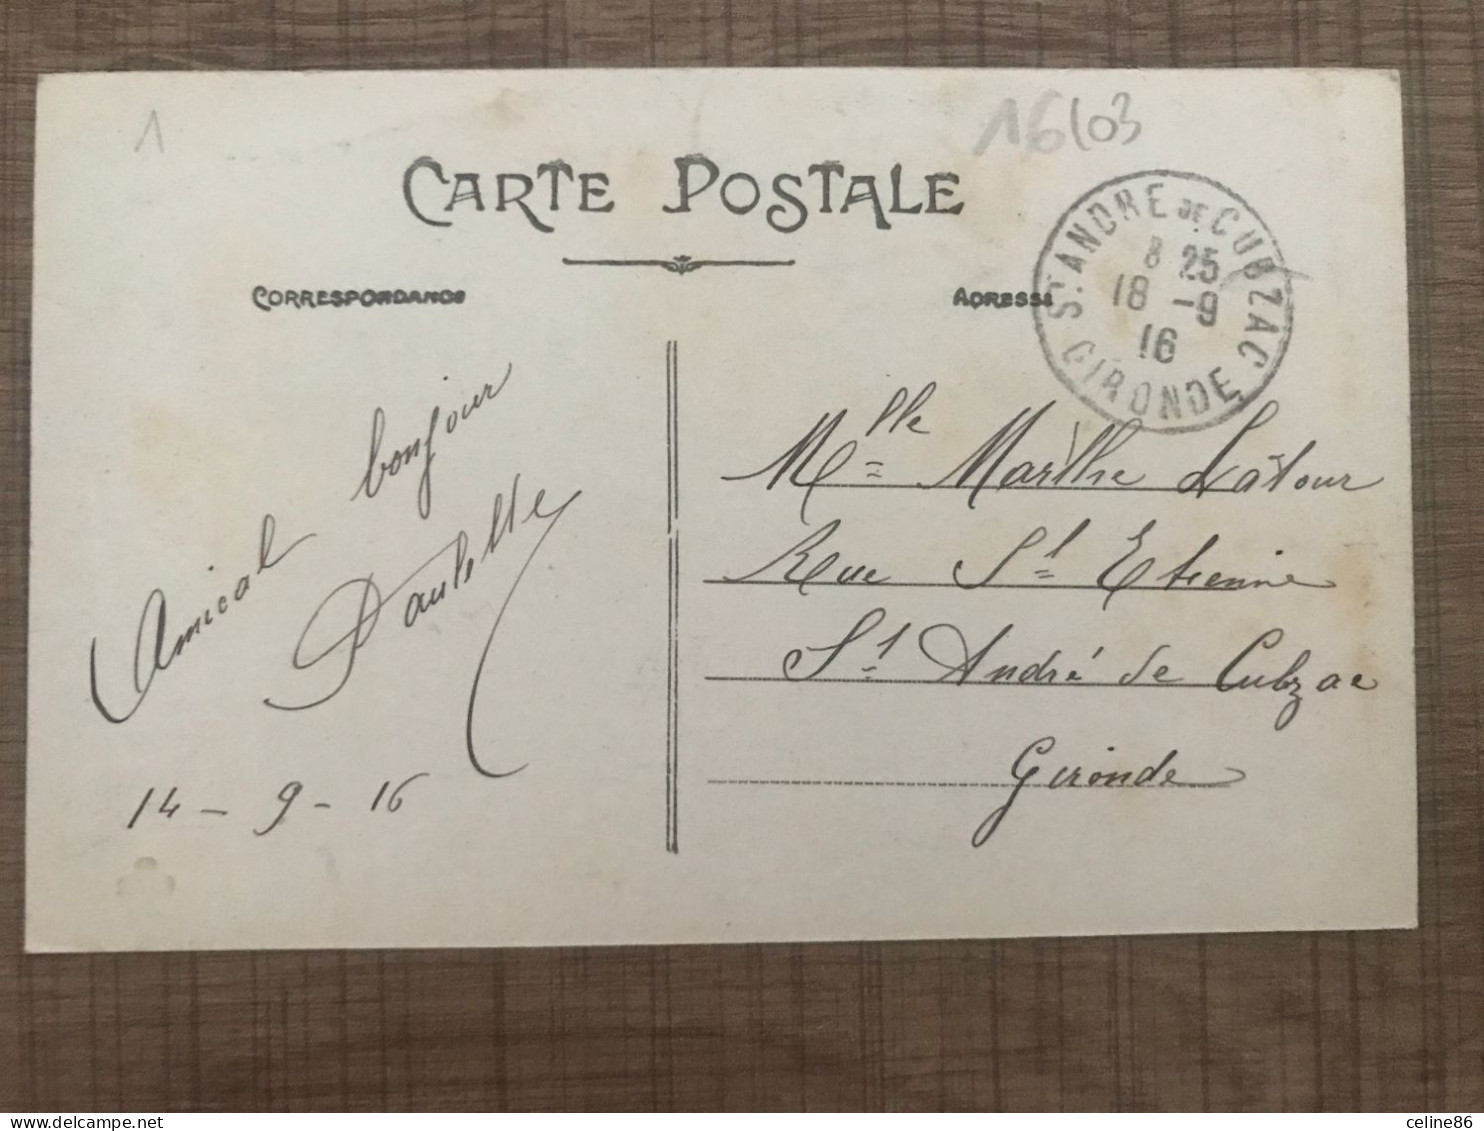 1
16103
CARTE POSTALE
CORRESPONDANCE
ADRESSE
ST ANDRE DE CUBZAC
8 25
18 -9
16
GIRONDE
Amical bonjour
Paulette
14 - 9 - 16
Mlle Marthe Latour
Rue St Etienne
St André de Cubzac
Gironde
delcampe.net
celine86